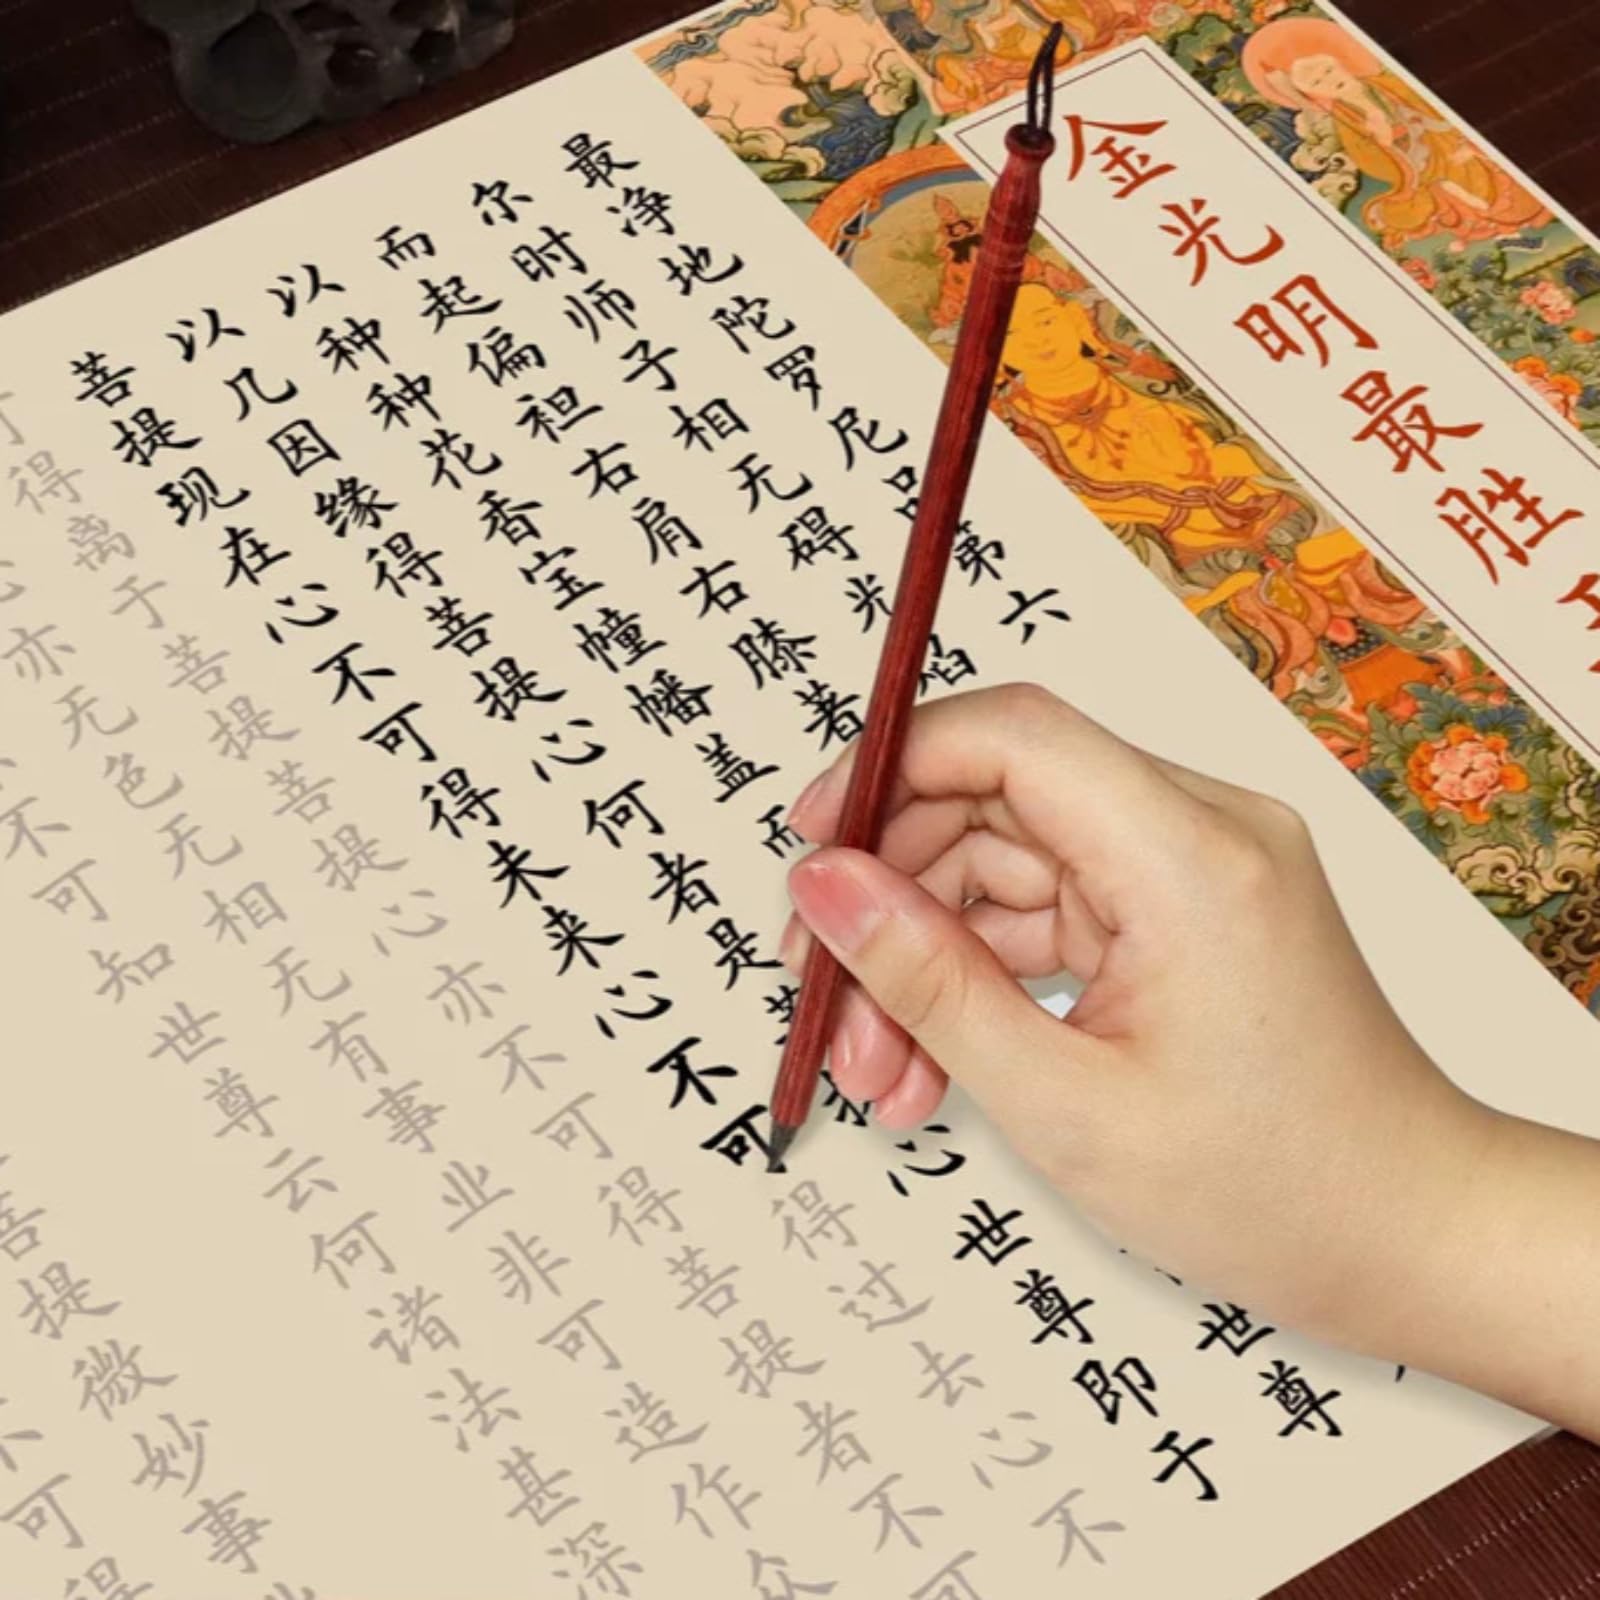 金光明最胜
最净地陀罗尼品第六
尔时师子相无碍光焰
而起偏袒右肩右膝著
以种种花香宝幢幡盖而世尊
以几因缘得菩提心何者是菩提心世尊即于
菩提现在心不可得未来心不可得过去心不
得离于菩提菩提心亦不可得菩提者不可
心亦无色无相无有事业非可造作众
不可知世尊云何诸法甚深
菩提微妙事
不可得